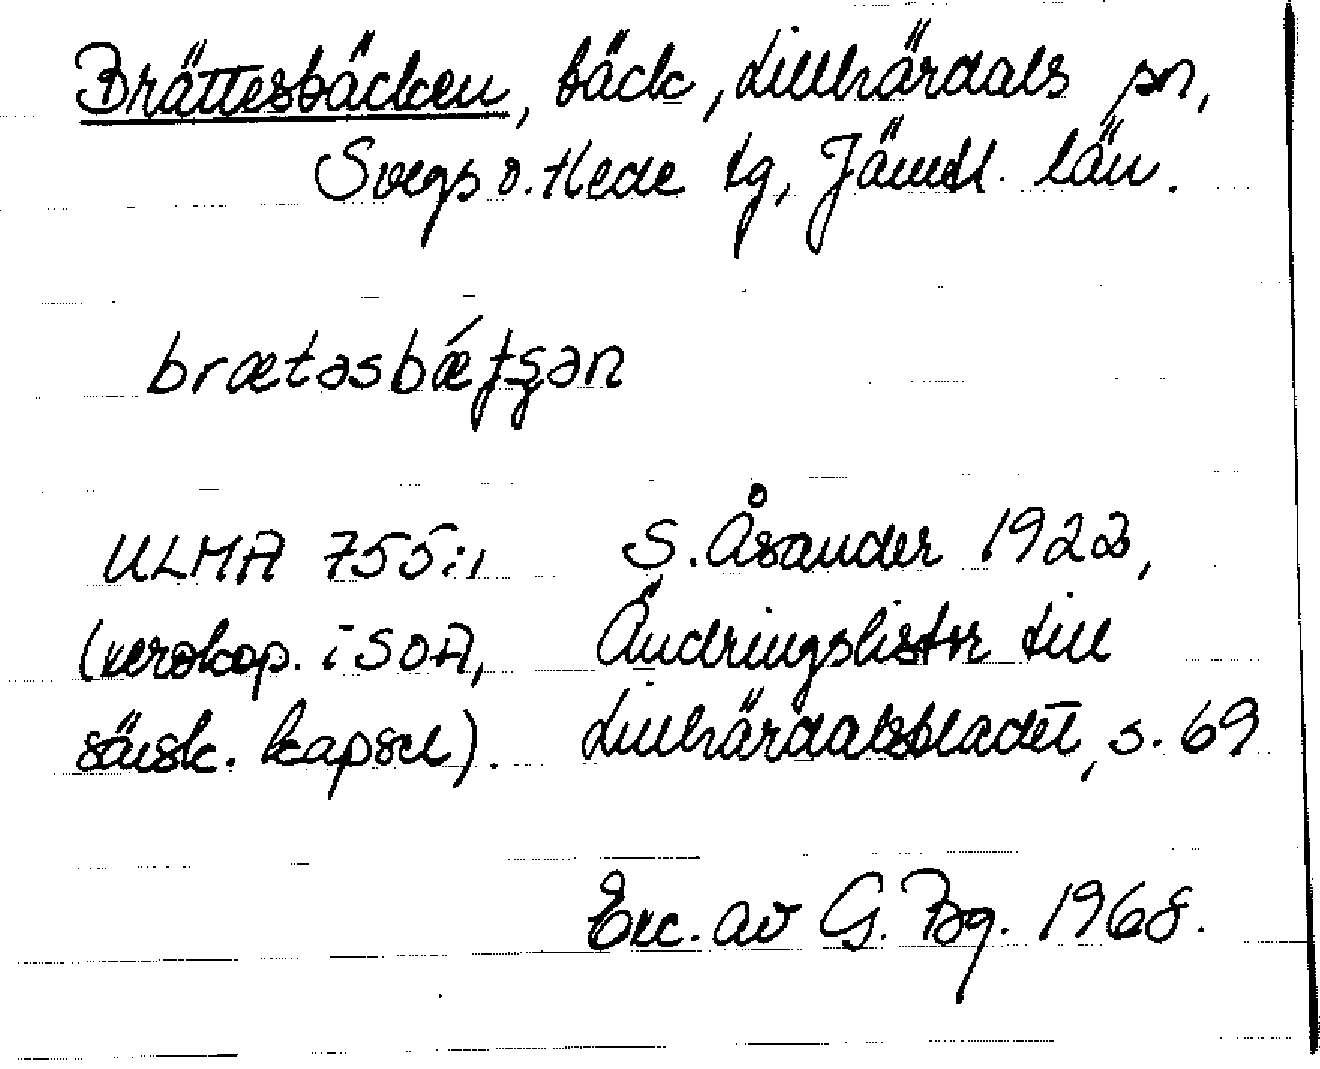 Brättesbäcken, bäck, Lillhärdals sn,
Svegs o. Hede tg, Jämtl. län.
brætəsbǽtʂən
ULMA 755:1 S. Åsander 1922,
(xerokop. i SOA, Ändringslistor till
särsk. kapsel). Lillhärdalsbladet, s. 69
Exc. av G. Bg. 1968.